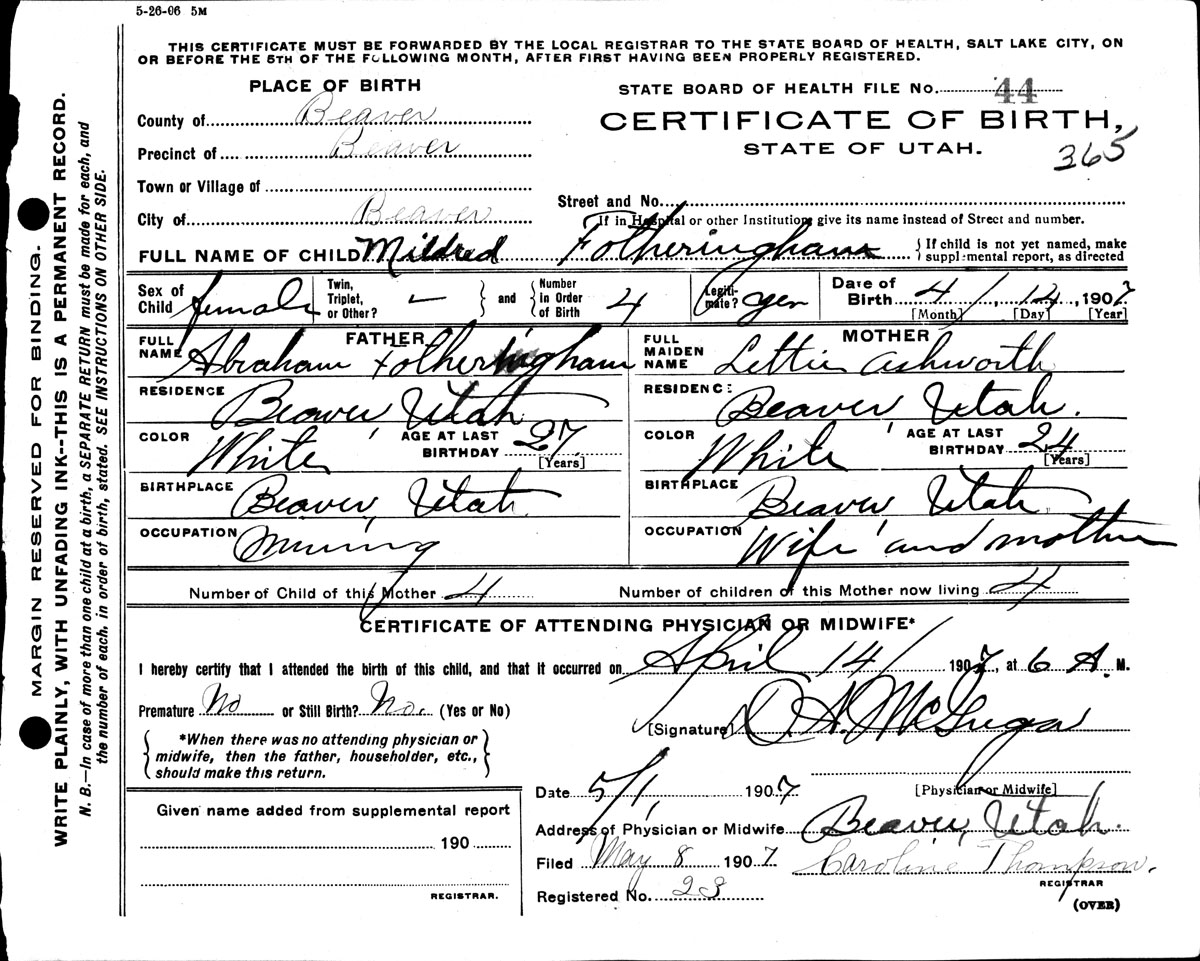 5-26-06 5M
THIS CERTIFICATE MUST BE FORWARDED BY THE LOCAL REGISTRAR TO THE STATE BOARD OF HEALTH, SALT LAKE CITY, ON
OR BEFORE THE 5TH OF THE FOLLOWING MONTH, AFTER FIRST HAVING BEEN PROPERLY REGISTERED.
PLACE OF BIRTH
STATE BOARD OF HEALTH FILE NO. 44
County of Beaver
CERTIFICATE OF BIRTH,
Precinct of Beaver
STATE OF UTAH.
365
Town or Village of
Street and No.
City of Beaver
If in Hospital or other Institution, give its name instead of Street and number.
FULL NAME OF CHILD Mildred Fotheringham
{ If child is not yet named, make
supplemental report, as directed
Sex of Child female
Twin, Triplet, or Other? —
} and {
Number in Order of Birth 4
Legitimate? yes
Date of Birth 4/ 14, 1907
[Month] [Day] [Year]
FATHER
FULL NAME Abraham Fotheringham
RESIDENCE Beaver, Utah
COLOR White
AGE AT LAST BIRTHDAY 27
[Years]
BIRTHPLACE Beaver, Utah
OCCUPATION Mining
MOTHER
FULL MAIDEN NAME Lettie Ashworth
RESIDENCE: Beaver, Utah.
COLOR White
AGE AT LAST BIRTHDAY 24
[Years]
BIRTHPLACE Beaver, Utah
OCCUPATION Wife and mother
Number of Child of this Mother 4
Number of children of this Mother now living 4
CERTIFICATE OF ATTENDING PHYSICIAN OR MIDWIFE*
I hereby certify that I attended the birth of this child, and that it occurred on April 14/ 1907, at 6 A. M.
Premature No or Still Birth? No. (Yes or No)
[Signature]
{ *When there was no attending physician or
midwife, then the father, householder, etc.,
should make this return. }
[Physician or Midwife]
Date 5/1, 1907
Address of Physician or Midwife Beaver, Utah.
Filed May 8 1907
Caroline Thompson.
REGISTRAR
Registered No. 23
(OVER)
Given name added from supplemental report
190
REGISTRAR.
MARGIN RESERVED FOR BINDING.
WRITE PLAINLY, WITH UNFADING INK--THIS IS A PERMANENT RECORD.
N. B.—In case of more than one child at a birth, a SEPARATE RETURN must be made for each, and
the number of each, in order of birth, stated. SEE INSTRUCTIONS ON OTHER SIDE.